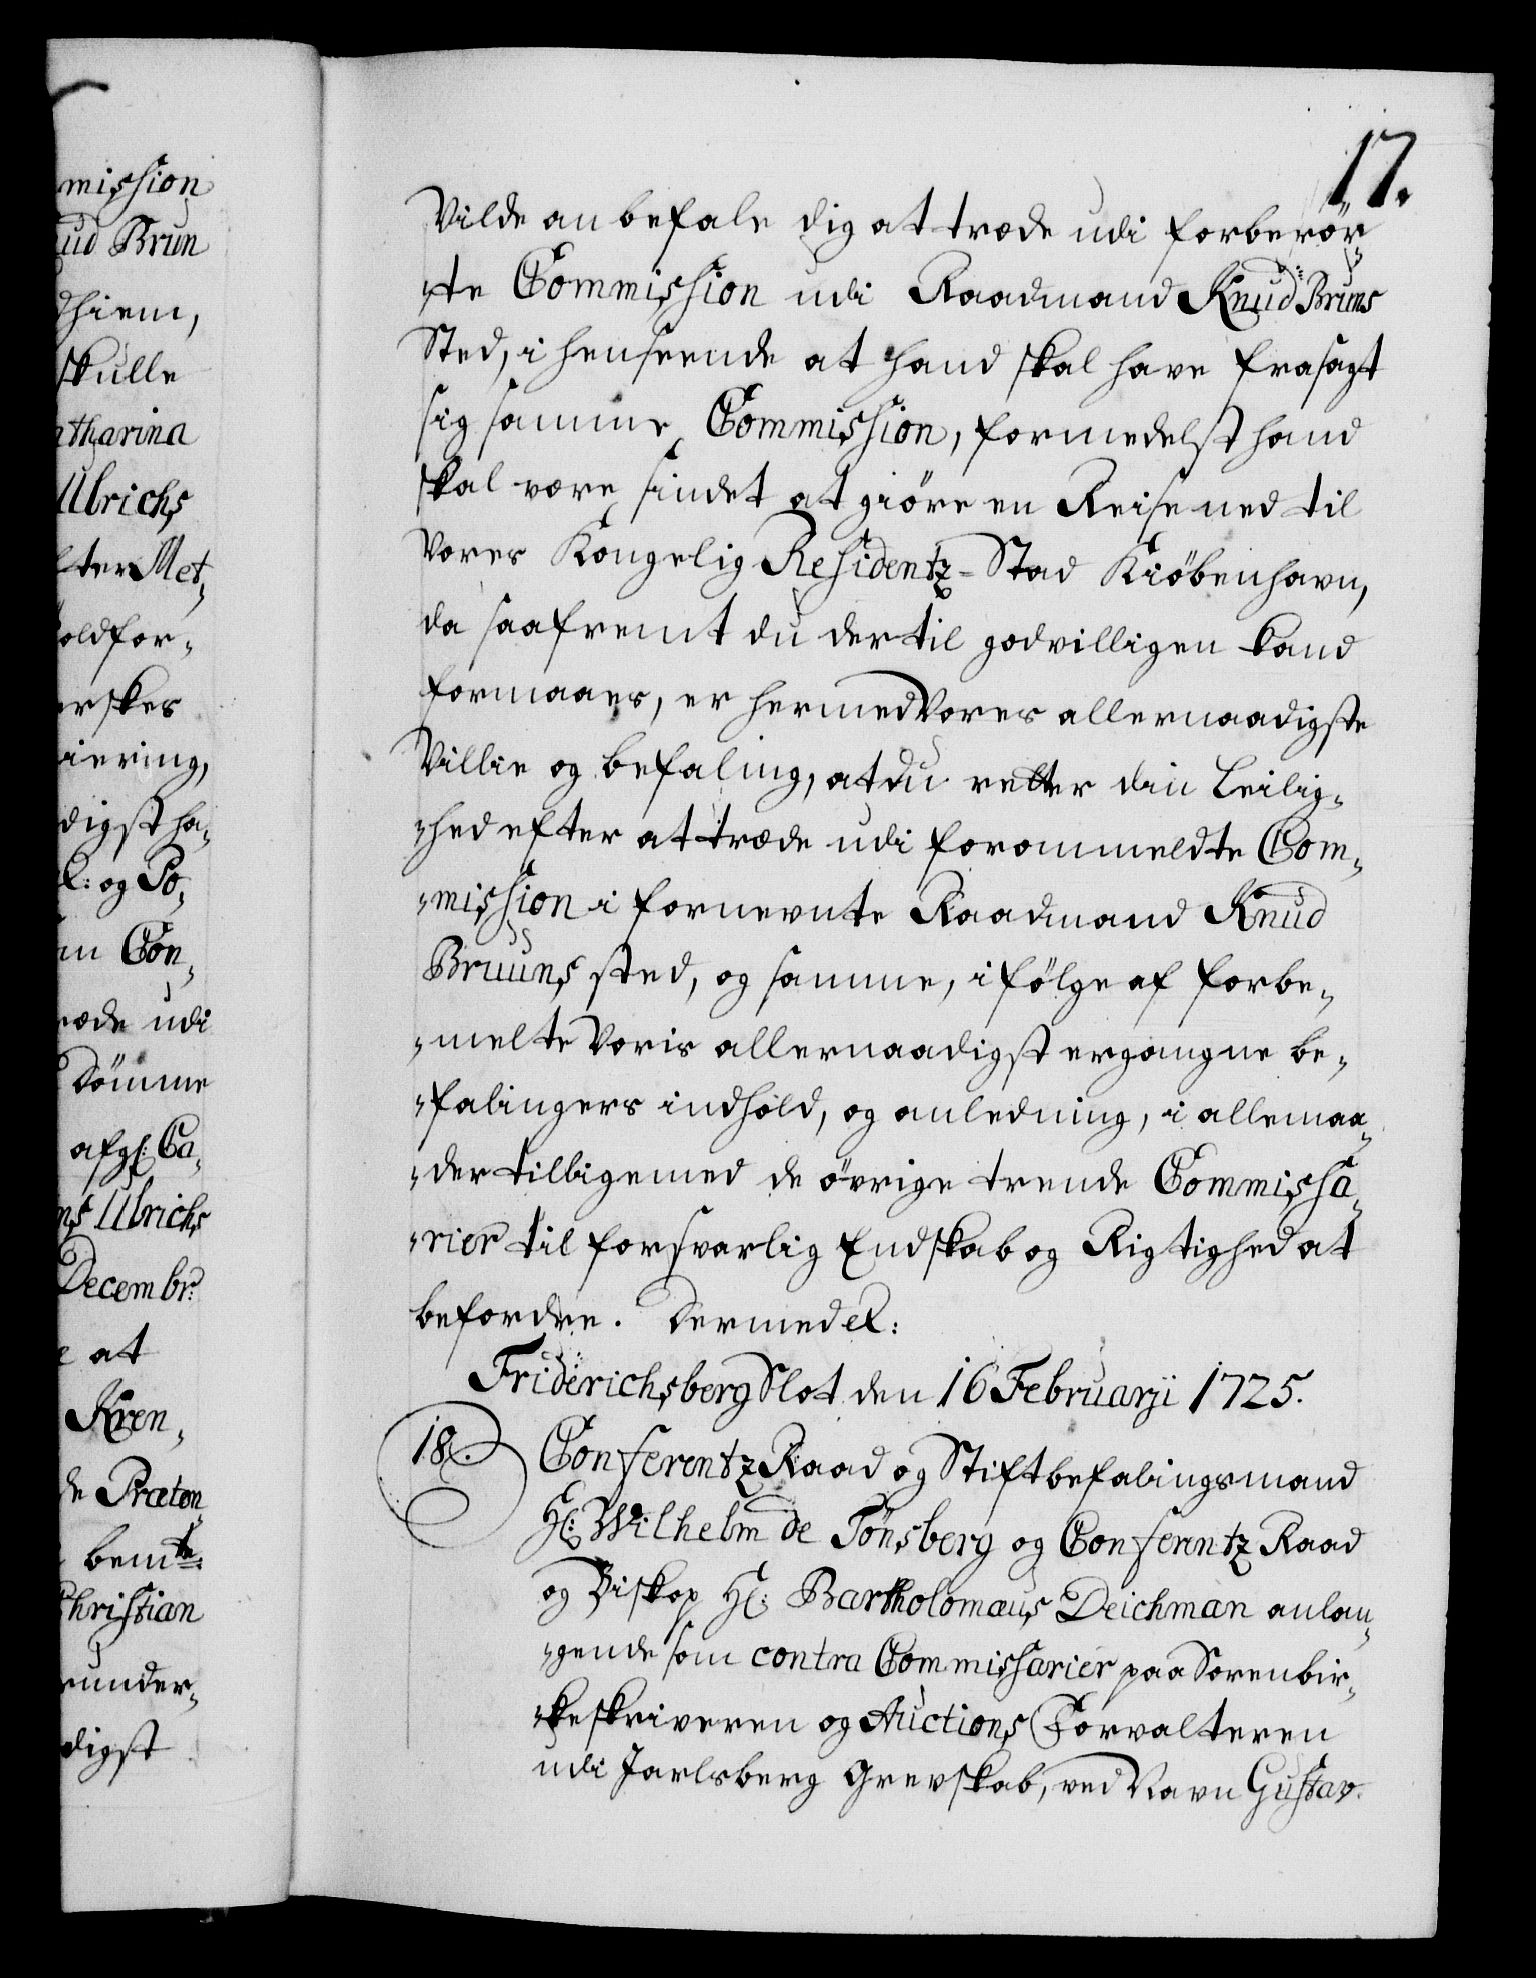 mission
ud Brun
dhiem,
skulle
atharina
Ulrichs
lter Met„
oldfor„
erskes
iering,
digst ha„
l: og Po„
m Con„
ræde udi
Dømme
afgl: Ca„
ns Ulrichs
Decembr:
e at
Kren„
de Præton„
bemte:
Christian
runder„
digst
17.
Vilde anbefale dig at træde udi forberør„
„te Commission udi Raadmand Knud Bruns
Sted, i henseende at hand skal have frasagt
sig samme Commission, formedelst hand
skal være sindet at giöre en Reise ned til
Vores Kongelig Residentz-Stad Kiöbenhavn,
da saafremt du dertil godvilligen kand
formaaes, er hermed Vores allernaadigste
Villie og befaling, at du retter din Leilig„
„hed efter at træde udi forommeldte Com„
„mission i fornevnte Raadmand Knud
Bruuns sted, og samme, i fölge af forbe„
„melte Voris allernaadigst ergangne be„
„falingers indhold, og anledning, i allemaa„
„der tilligemed de övrige trende Commissa„
„rier til forsvarlig Endskab og Rigtighed at
befordre. Dermed el:
Friderichsberg Slot den 16 Februarji 1725.
18. Conferentz Raad og Stiftbefalingsmand
Hl: Wilhelm de Tönsberg og Conferentz Raad
og Biskop Hl: Bartholomæus Deichman anlan„
„gende som contra Commissarier paa Sorenbir„
„keskriveren og Auctions Forvalteren
udi Jarlsberg Grevskab, ved Navn Gustav.